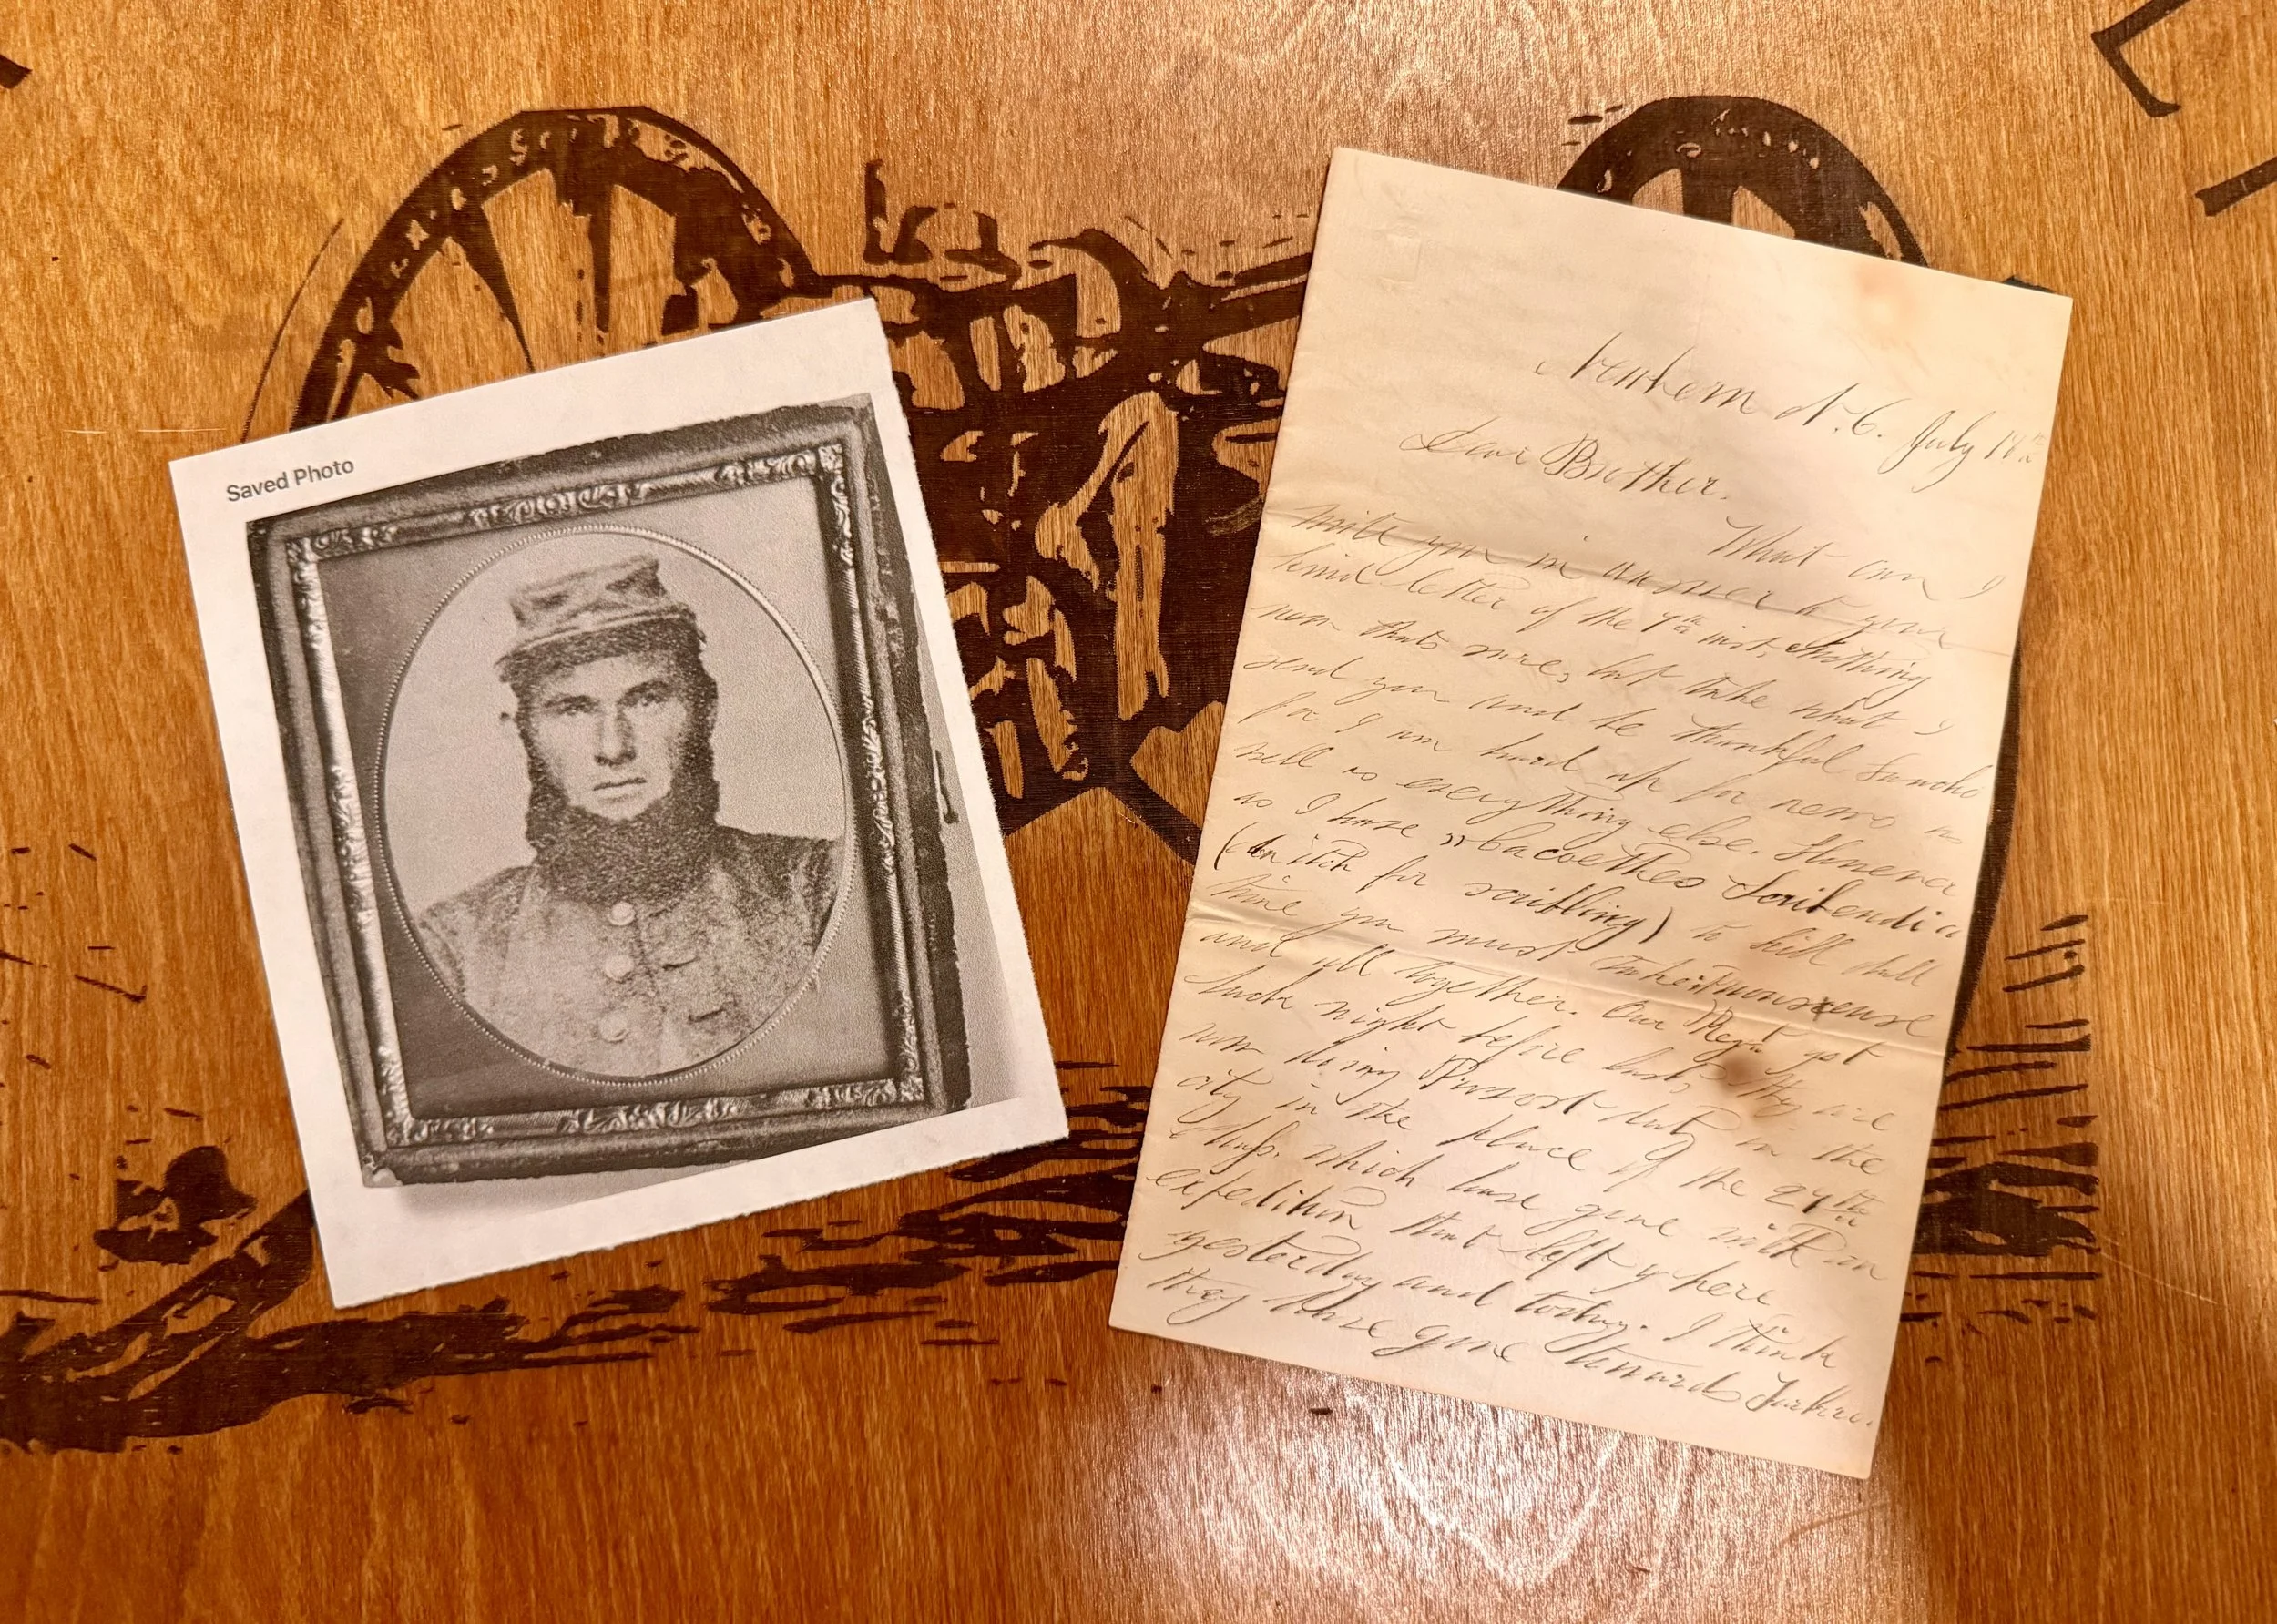 Saved Photo
Newbern N.C. July 18th
Dear Brother.
What can I
write you in answer to your
kind letter of the 7th inst, Anything
new thats sure, but take what I
send you and be thankful Sancho
for I am hard up for news as
well as everything else. However
as I have "Cacoethes Scribendi a
(an itch for scribbling) to kill dull
time you must take it nonscense
and all together. Our Regt got
back night before last, they are
now doing Provost duty in the
city in the place of the 24th
which have gone with an
expedition that left here
yesterday and today. I think
they have gone towards